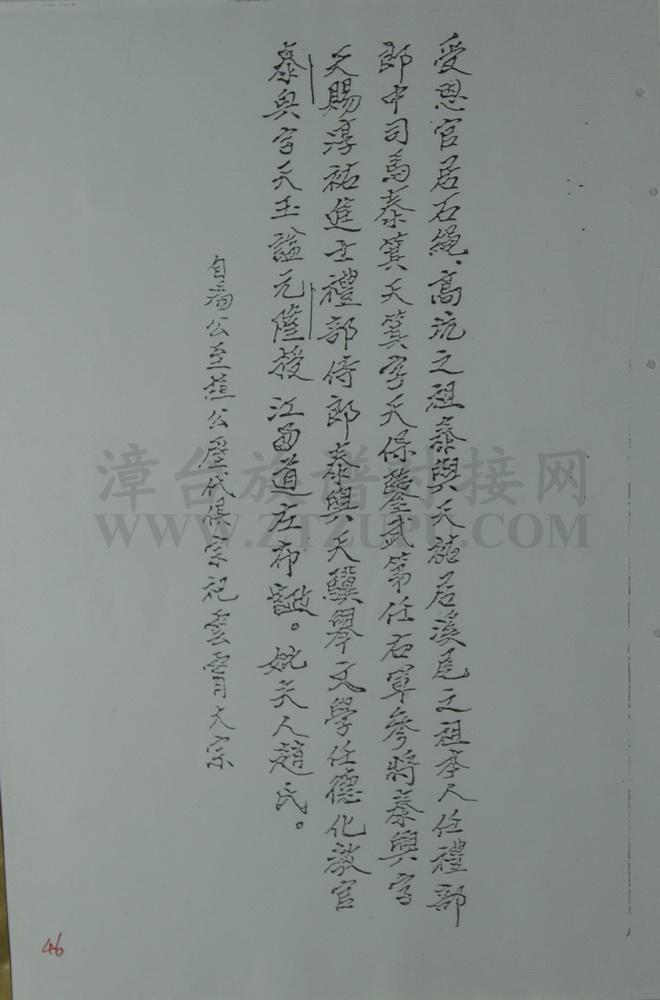 受恩官居石繩、高坑之祖泰興天祐居溪尾之祖本人任禮部
郎中司馬泰箕天箕字天保登武第任右軍參將泰興字
天賜淳祐進士禮部侍郎泰興天驥舉文學任德化教官
泰興字天玉諡元隆授江西道左布政。妣夫人趙氏。
公至公歷代俱宗祀雲霄大宗
漳台族谱对接网
WWW.ZTZUPU.COM
46